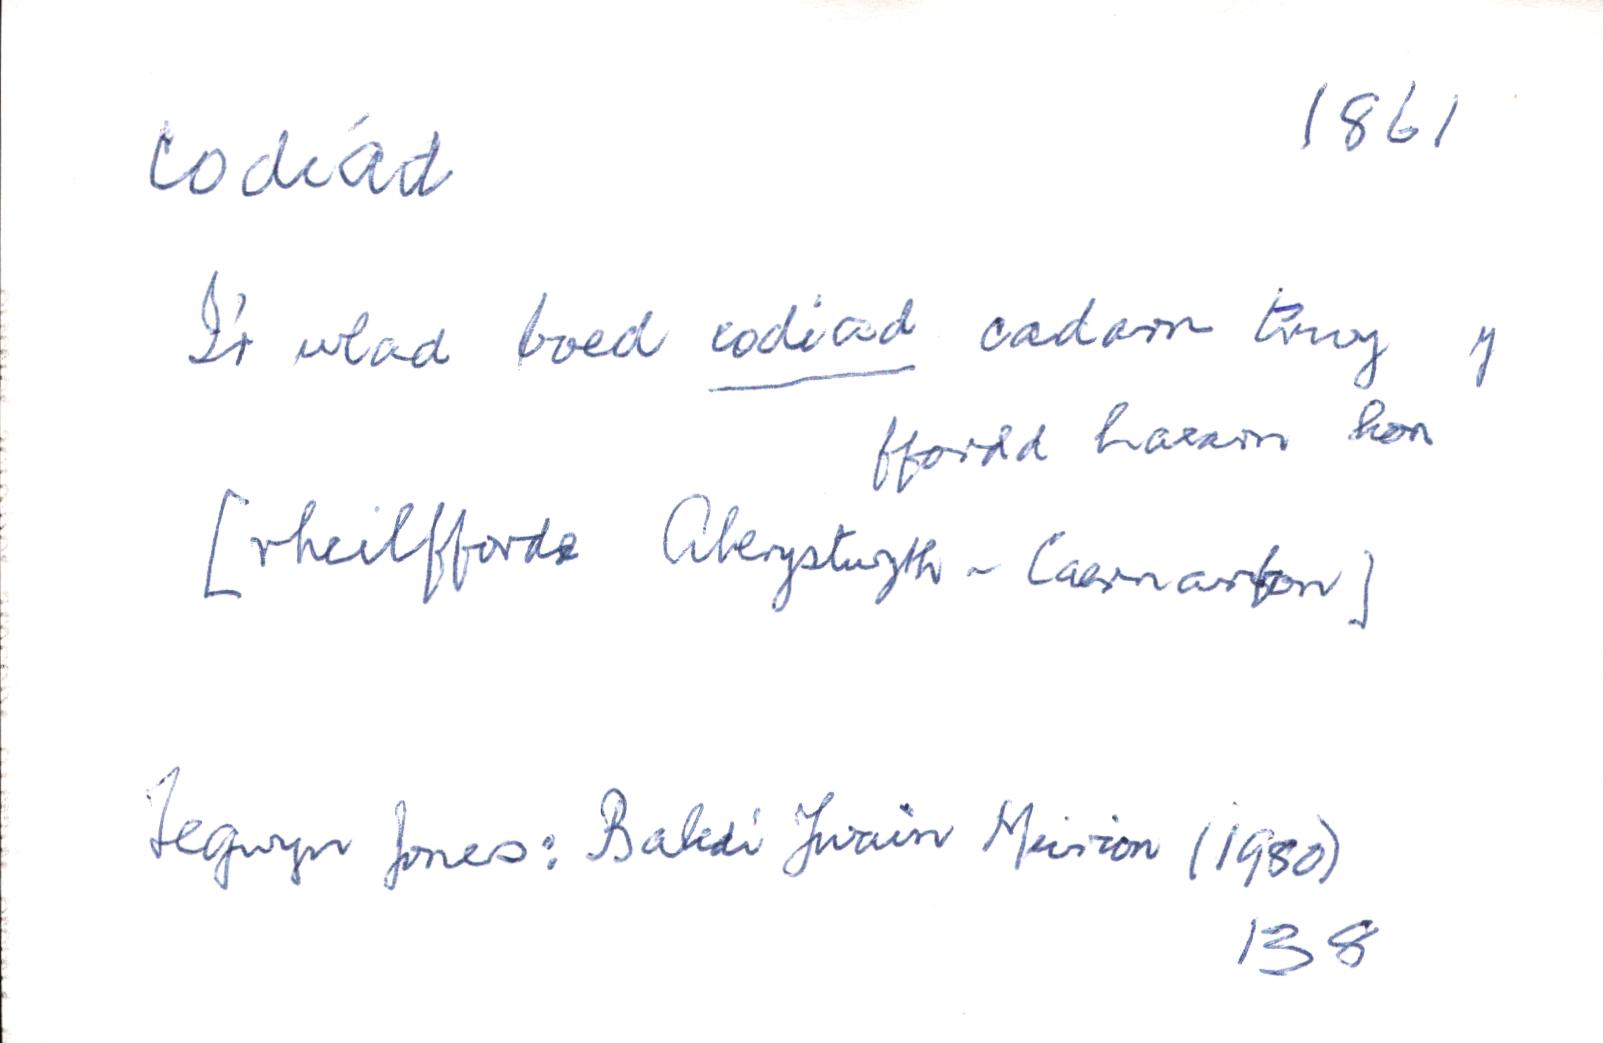 codiad 1861
I'r wlad boed codiad cadarn trwy y
ffordd haearn hon
[rheilffordd Aberystwyth - Caernarfon]
Tegwyn Jones: Baledi Ywain Meirion (1980)
138